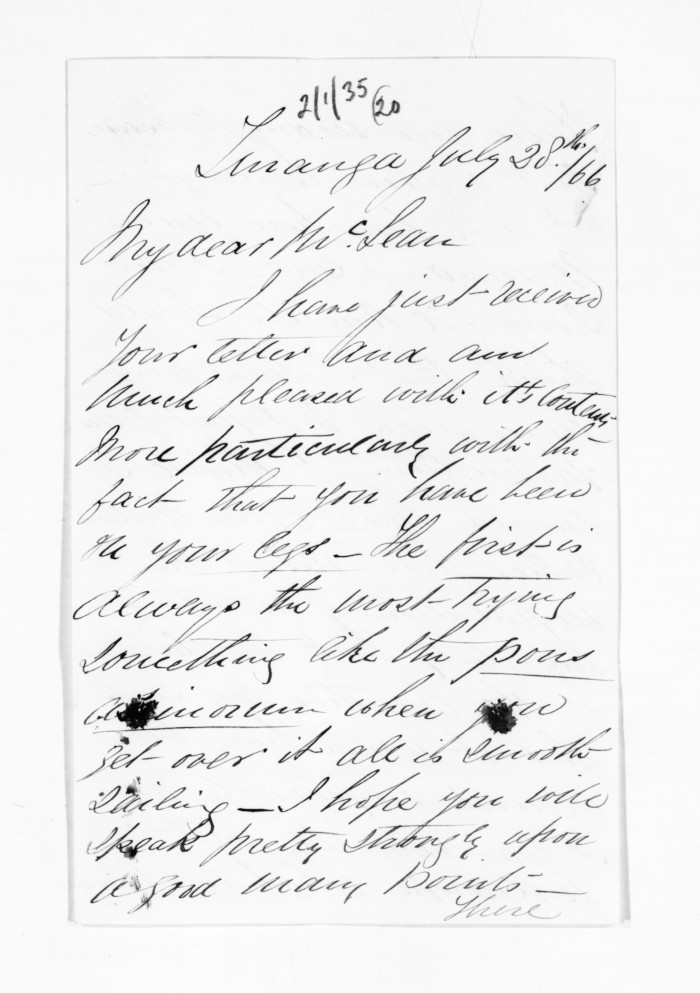 2/1/35 (20
Turanga July 28th./66
My dear McLean
I have just received
Your letter and am
Much pleased with it's contents
More particularly with the
fact that you have been
on your legs – The first is
always the most trying
something like the pons
asinorum when you
get over it all is smooth
sailing – I hope you will
speak pretty strongly upon
a good many points –
There